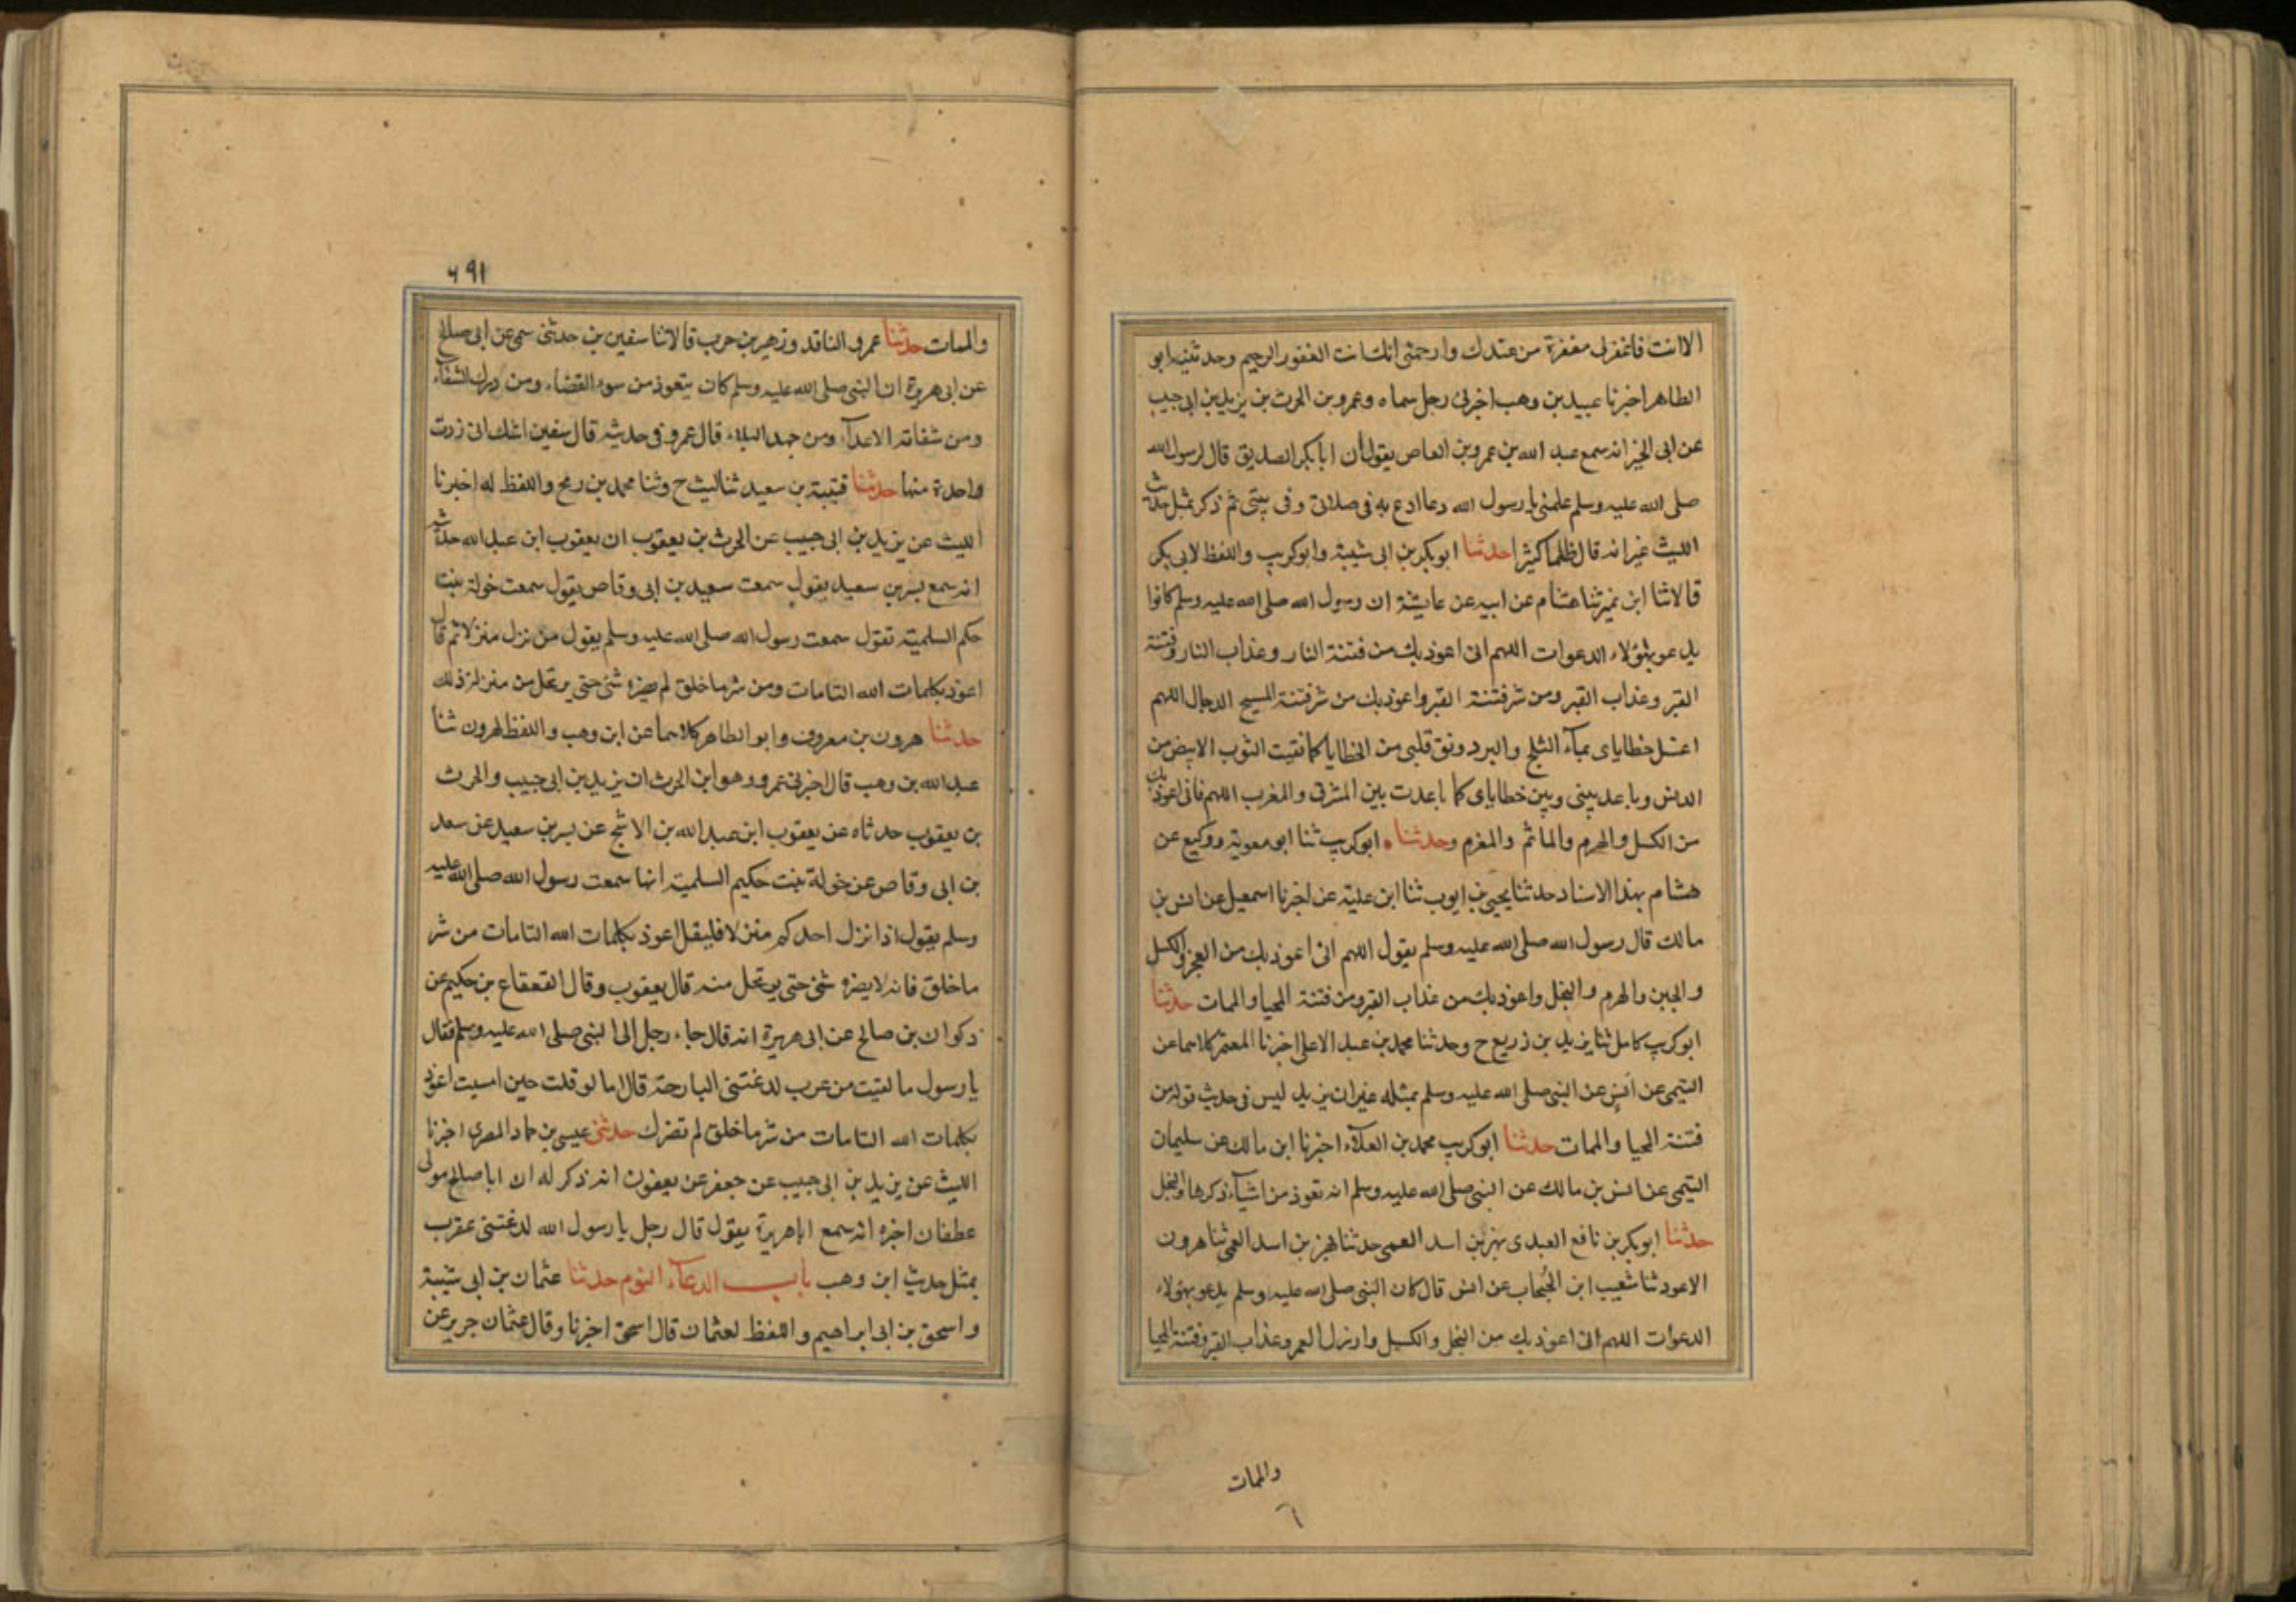 الا انت فاغفر لى مغفرة من عندك وارحمنى انك انت الغفور الرحيم وحدثنيه ابو
الطاهر اخبرنا عبيد بن وهب اخبرنى رجل سماه وعمرو بن الحرث بن يزيد بن ابى حبيب
عن ابى الخير انه سمع عبد الله بن عمرو بن العاص يقول ان ابا بكر الصديق قال لرسول الله
صلى الله عليه وسلم علمنى يا رسول الله دعا ادع به فى صلاتى وفى بيتى ثم ذكر بمثل حديث
الليث غير انه قال ظلما كثيرا حدثنا ابو بكر بن ابى شيبة وابو كريب واللفظ لابى بكر
قالا ثنا ابن نمير ثنا هشام عن ابيه عن عايشة ان رسول الله صلى الله عليه وسلم كانوا
يدعو بهؤلاء الدعوات اللهم انى اعوذ بك من فتنة النار وعذاب النار وفتنة
القبر وعذاب القبر ومن شر فتنة القبر واعوذ بك من شر فتنة المسيح الدجال اللهم
اغسل خطاياى بمآء الثلج والبرد ونق قلبى من الخطايا كما نقيت الثوب الابيض من
الدنس وباعد بينى وبين خطاياى كما باعدت بين المشرق والمغرب اللهم فانى اعوذ بك
من الكسل والهرم والماثم والمغرم وحدثناه ابو كريب ثنا ابو معوية ووكيع عن
هشام بهذا الاسناد حدثنا يحيى بن ايوب ثنا ابن علية عن اخبرنا اسمعيل عن انس بن
مالك قال رسول الله صلى الله عليه وسلم يقول اللهم انى اعوذ بك من العجز والكسل
والجبن والهرم والبخل واعوذ بك من عذاب القبر ومن فتنة المحيا والممات حدثنا
ابو كريب كامل ثنا يزيد بن زريع ح وحدثنا محمد بن عبد الاعلى اخبرنا المعتمر كلاهما عن
التيمى عن انس عن النبى صلى الله عليه وسلم بمثله غير ان يزيد ليس فى حديث قوله من
فتنة المحيا والممات حدثنا ابو كريب محمد بن العلآء اخبرنا ابن مالك عن سليمان
التيمى عن انس بن مالك عن النبى صلى الله عليه وسلم انه تعوذ من اشيآء ذكرها والبخل
حدثنا ابو بكر بن نافع العبدى بهز بن اسد العمى حدثنا بهز بن اسد العمى ثنا هرون
الاعود ثنا شعيب ابن الحُبحاب عن انس قال كان النبى صلى الله عليه وسلم يدعو بهؤلاء
الدعوات اللهم انى اعوذ بك من البخل والكسل وارذل العمر وعذاب القبر وفتنة المحيا
والممات
٦٩١
والممات حدثنا عمرو الناقد وزهير بن حرب قالا ثنا سفين بن حدثنى سمى عن ابى صلاح
عن ابى هريرة ان النبى صلى الله عليه وسلم كان يتعوذ من سوء القضاء ومن درك الشقآء
ومن شفاتة الاعدآء ومن جهد البلاء قال عمرو فى حديثه قال سفين اشك انى زدت
واحدة منها حدثنا قتيبة بن سعيد ثنا ليث ح وثنا محمد بن رمح واللفظ له اخبرنا
الليث عن يزيد بن ابى حبيب عن الحرث بن يعقوب ان يعقوب ابن عبد الله حدثه
انه سمع بسر بن سعيد يقول سمعت سعيد بن ابى وقاص يقول سمعت خولة بنت
حكم السلمية تقول سمعت رسول الله صلى الله عليه وسلم يقول من نزل منزلا ثم قال
اعوذ بكلمات الله التامات ومن شر ما خلق لم يضره شئ حتى يرتحل من منزله ذلك
حدثنا هرون بن معروف وابو الطاهر كلاهما عن ابن وهب واللفظ لهرون ثنا
عبد الله بن وهب قال اخبرنى عمرو وهو ابن الحرث ان يزيد بن ابى حبيب والحرث
بن يعقوب حدثاه عن يعقوب ابن عبد الله بن الاشج عن بسر بن سعيد عن سعد
بن ابى وقاص عن خولة بنت حكيم السلمية انها سمعت رسول الله صلى الله عليه
وسلم يقول اذا نزل احدكم منزلا فليقل اعوذ بكلمات الله التامات من شر
ما خلق فانه لا يضره شئ حتى يرتحل منه قال يعقوب وقال القعقاع بن حكيم عن
ذكوان بن صالح عن ابى هريرة انه قال جاء رجل الى النبى صلى الله عليه وسلم فقال
يا رسول ما لقيت من عرب لدغتنى البارحة قال اما لو قلت حين امسيت اعوذ
بكلمات الله التامات من شر ما خلق لم تضرك حدثنى عيسى بن حماد المصرى اخبرنا
الليث عن يزيد بن ابى حبيب عن جعفر عن يعقوب انه ذكر له ان ابا صالح مولى
عطفان اخبره انه سمع ابا هريرة يقول قال رجل يا رسول الله لدغتنى عقرب
بمثل حديث ابن وهب باب الدعآء النوم حدثنا عثمان بن ابى شيبة
واسحق بن ابى ابراهيم واللفظ لعثمان قال اسحق اخبرنا وقال عثمان جرير عن